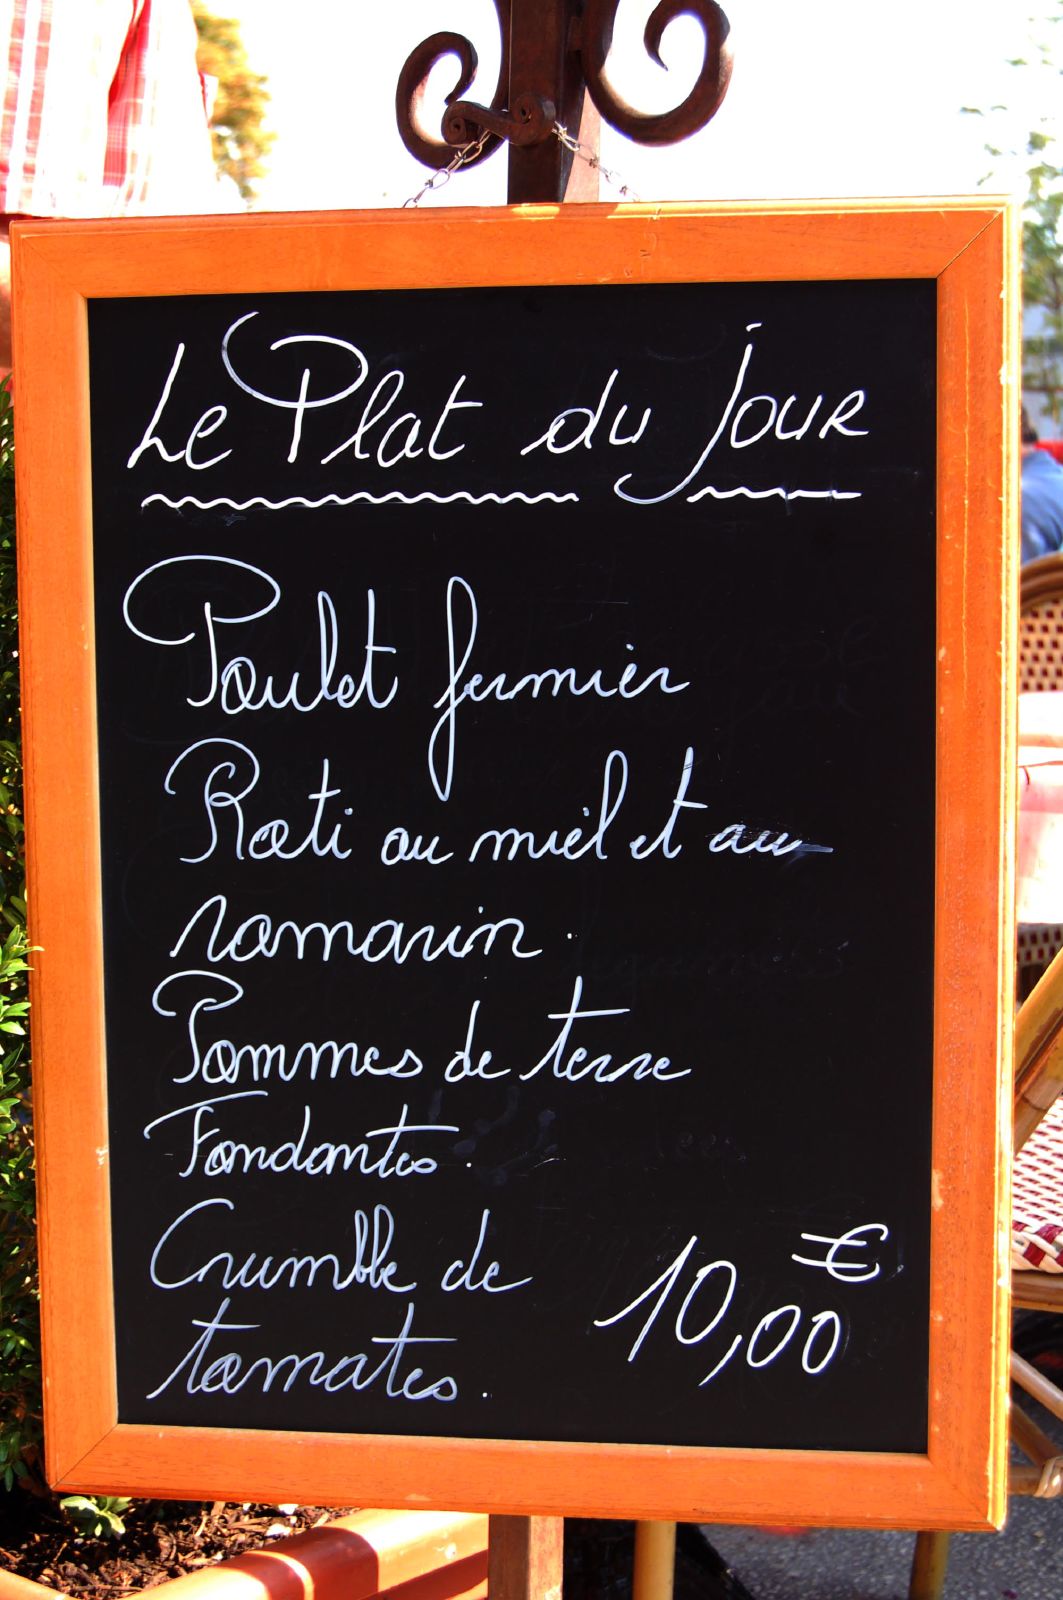 Le Plat du jour
Poulet fermier
Roti au miel et au
romarin.
Pommes de terre
Fondantes.
Crumble de
tomates.
10,00 €